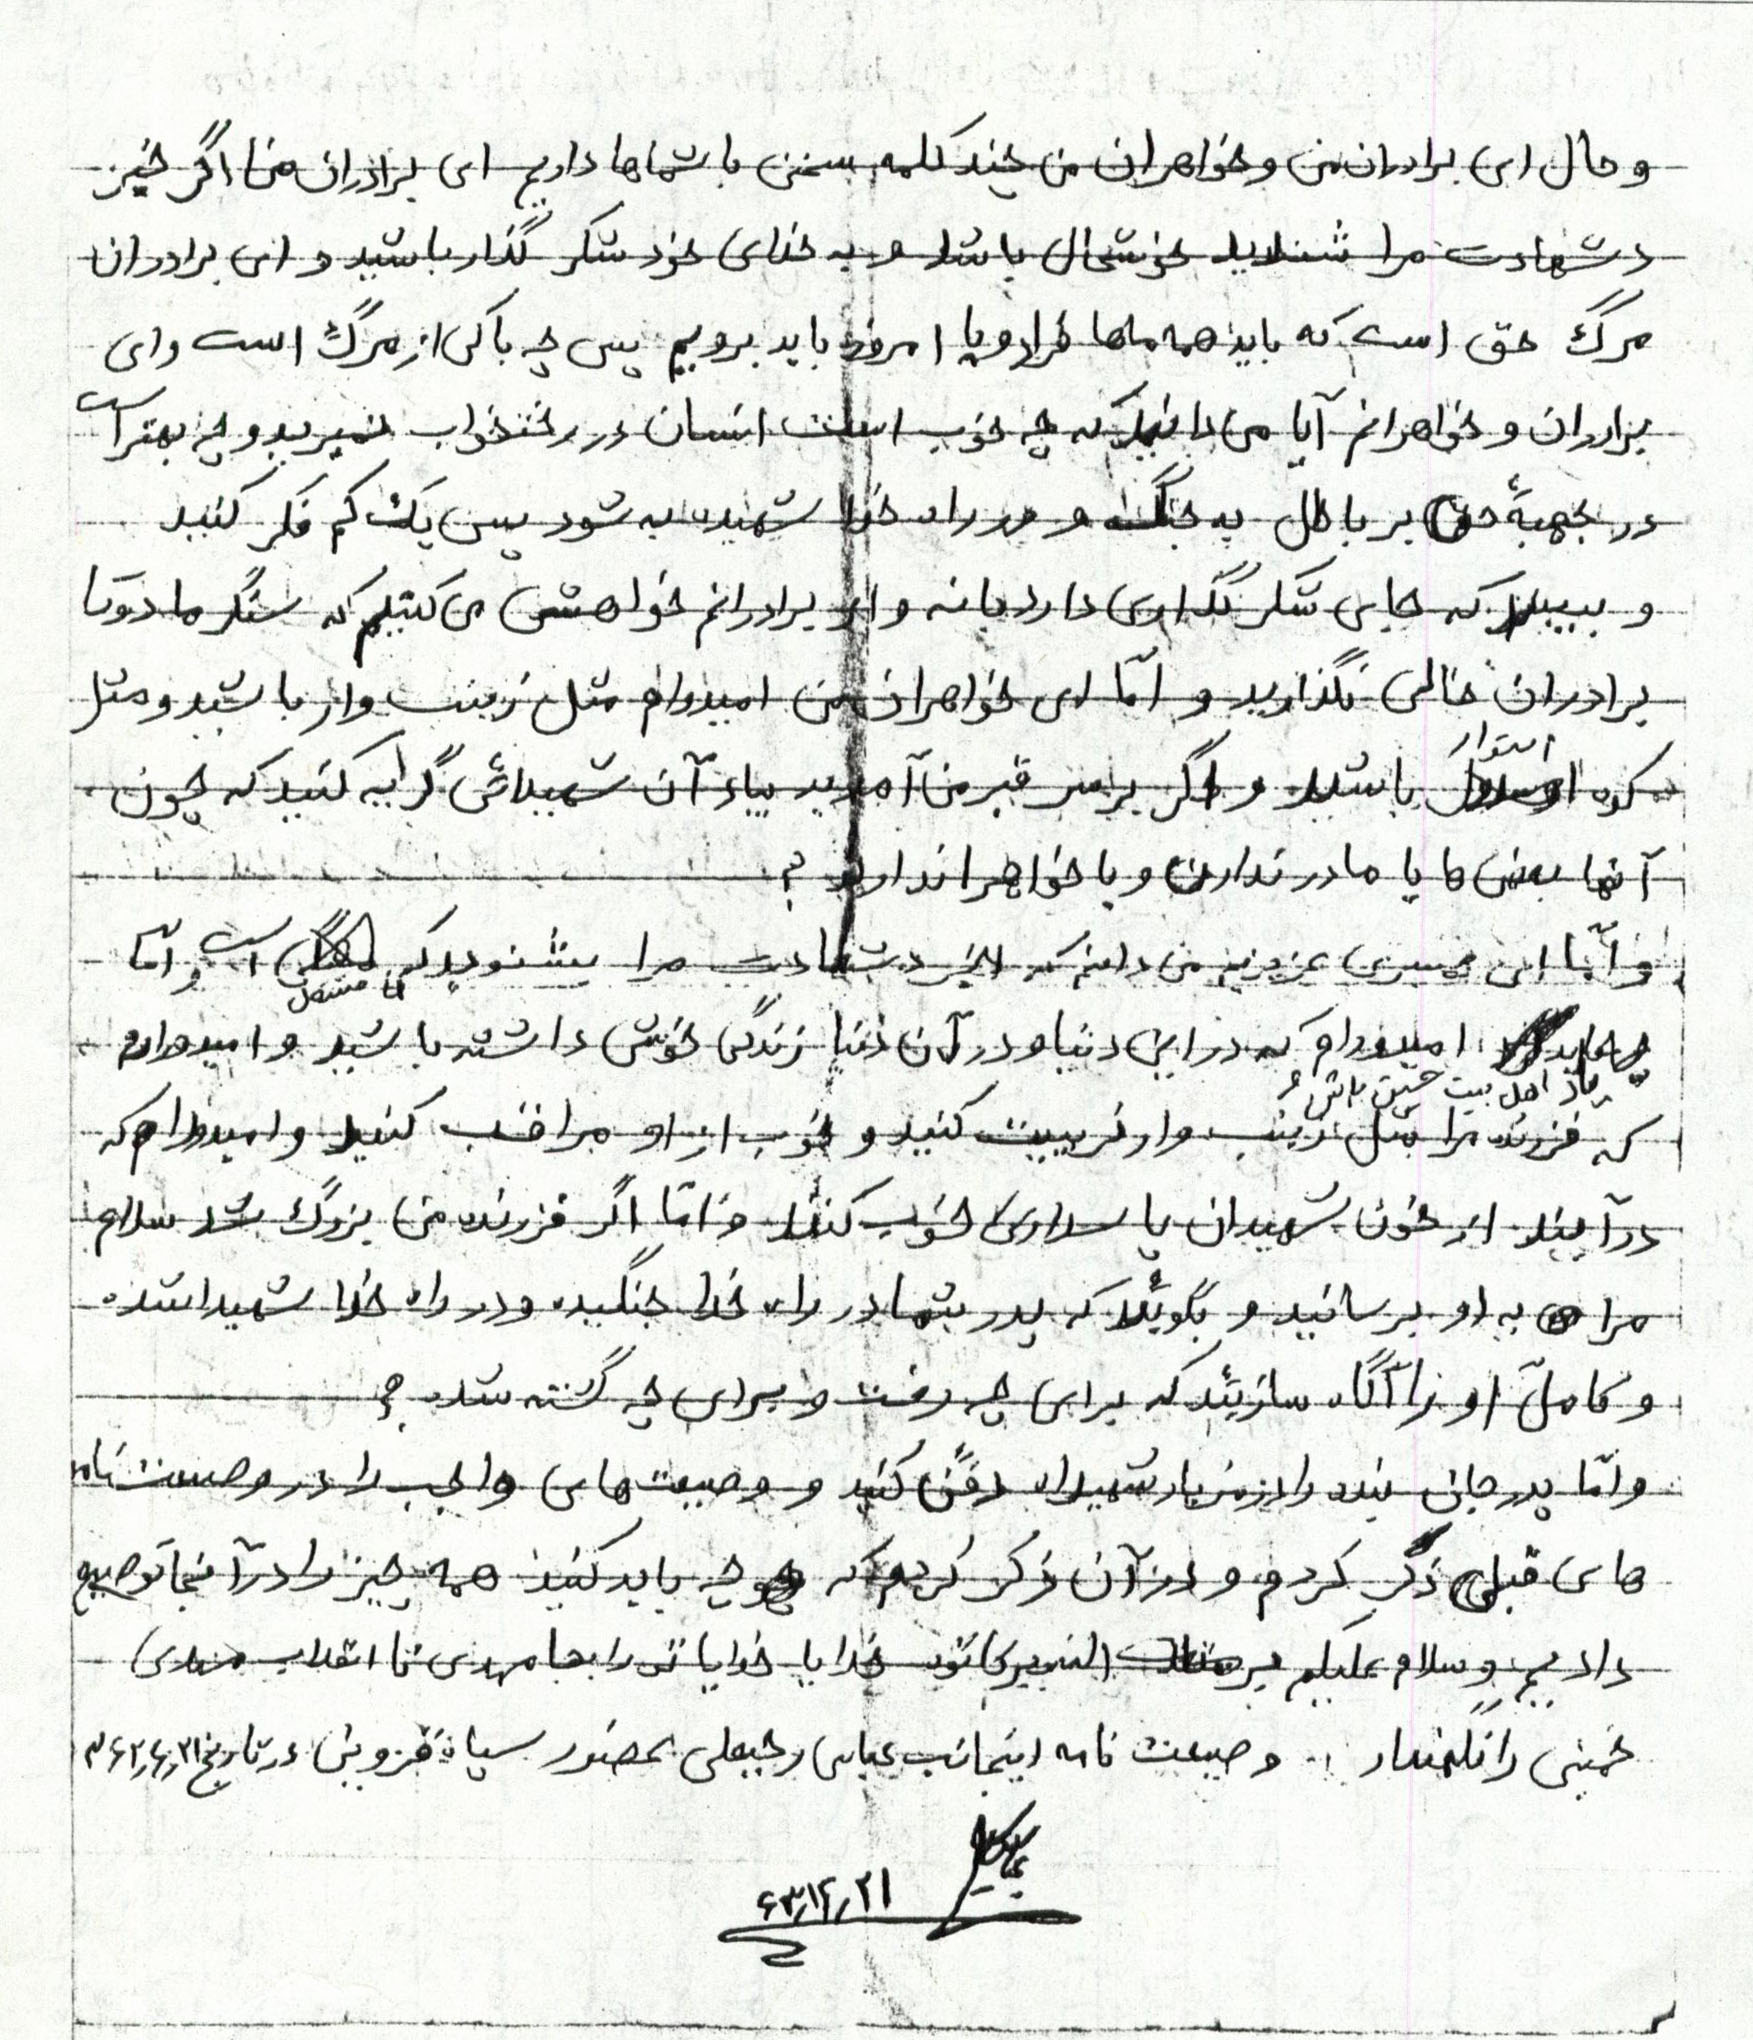 و حال ای برادران من و خواهران من چند کلمه سخنی با شماها داریم ای برادران من اگر خبر
شهادت مرا شنیدید خوشحال باشد و به خدای خود شکر گذار باشید و ای برادران
مرگ حق است که باید همه ماها فردا و یا امروز باید برویم پس چه باکی از مرگ است وای
برادران و خواهرانم آیا می دانید که چه خوب است انسان در رختخواب نمیرید و چه بهتر است
در جبههٔ حق بر باطل به جنگد و در راه خدا شهید به شود پس یک کم فکر کنید
و ببیند که جای شکر گذاری دارد یا نه و ای برادرانم خواهشی می کنیم که سنگر ما دوتا
برادران خالی نگذارید و امّا ای خواهران من امیدوام مثل زینب وار باشید و مثل
کوه استوار باشید و اگر بر سر قبر من آمدید بیاد آن شهیدائی گرایه کنید که چون
آنها بعضی ها یا مادر ندارن و یا خواهر ندارند
و امّا ای همسری عزیزیم می دانم که اگر شهادت مرا بشنوید که مشکل است و امّا
امیدوام که در این دنیا و در آن دنیا زندگی خوشی داشته باشید و امیدوام
بیاد اهل بیت حسین باش
که فرزند مرا مثل زینب وار تربیت کنید و خوب از او مراقب کنید و امیدوام که
در آیند از خون شهیدان پاسداری خوب کند و امّا اگر فرزند من بزرگ شد سلام
مرا به او برسانید و بگوئد که پدر شما در راه خدا جنگید و در راه خدا شهید شده
و کاملآ او را آگاه سازیند که برای چه رفت و برای چه کشته شد
و امّا پدر جانی بنده را در مزار شهیدان دفن کنید و وصیت های واجب را در وصیت نامه
های قبلی ذکر کردم و در آن ذکر کردم که چه باید کنید همه چیز را در آنجا توضیح
دادیم و سلام علیکم خدایا خدایا تو را بجا مهدی تا انقلاب مهدی
خمینی را نگهدار .. وصیت نامه اینجانب عباس رجبعلی بحضور سپاه قزوین در تاریخ
۶۳٫۱۲٫۲۱